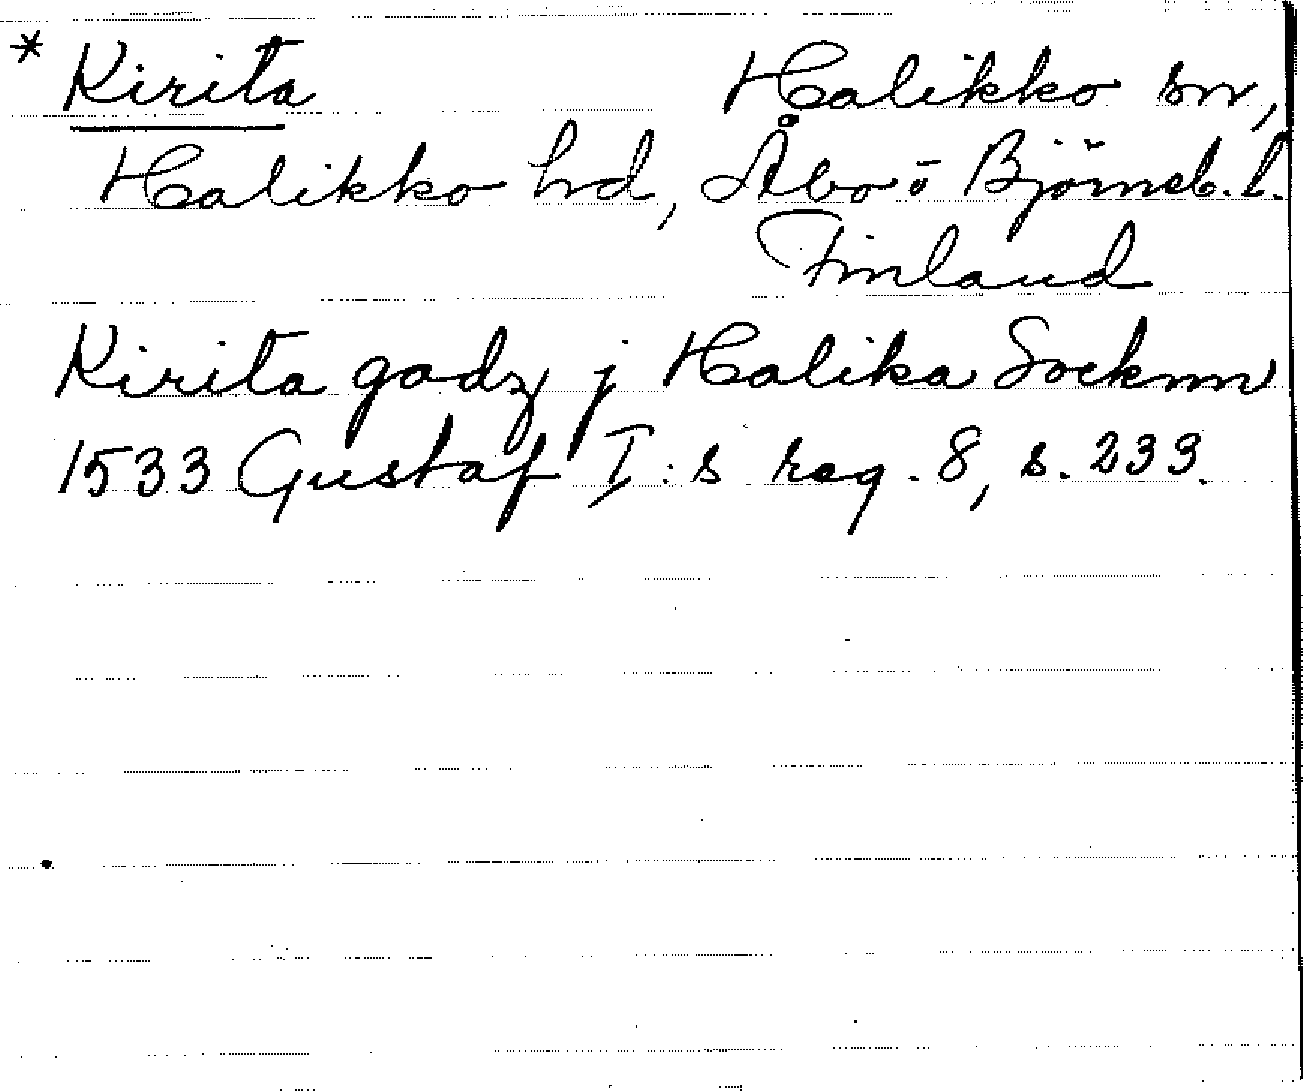 * Kirita Halikko sn,
Halikko hd, Åbo o Björneb. l.
Finland
Kirita godz j Halika Socknn
1533 Gustaf I:s reg. 8, s. 233.